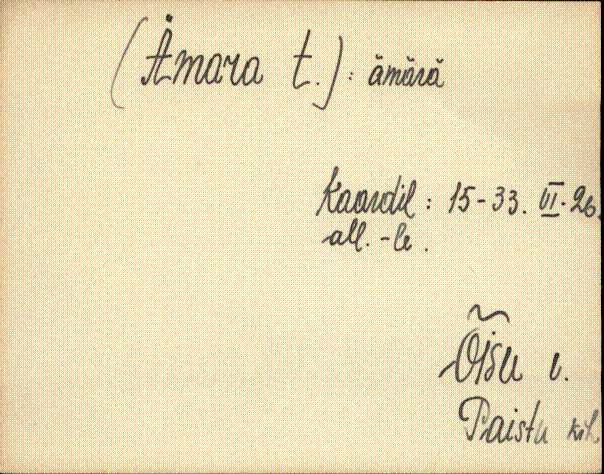 (Ämara t.): ämärä
Kaardil: 15-33. VI.26.
all. -le.
Õisu v.
Paistu kih.